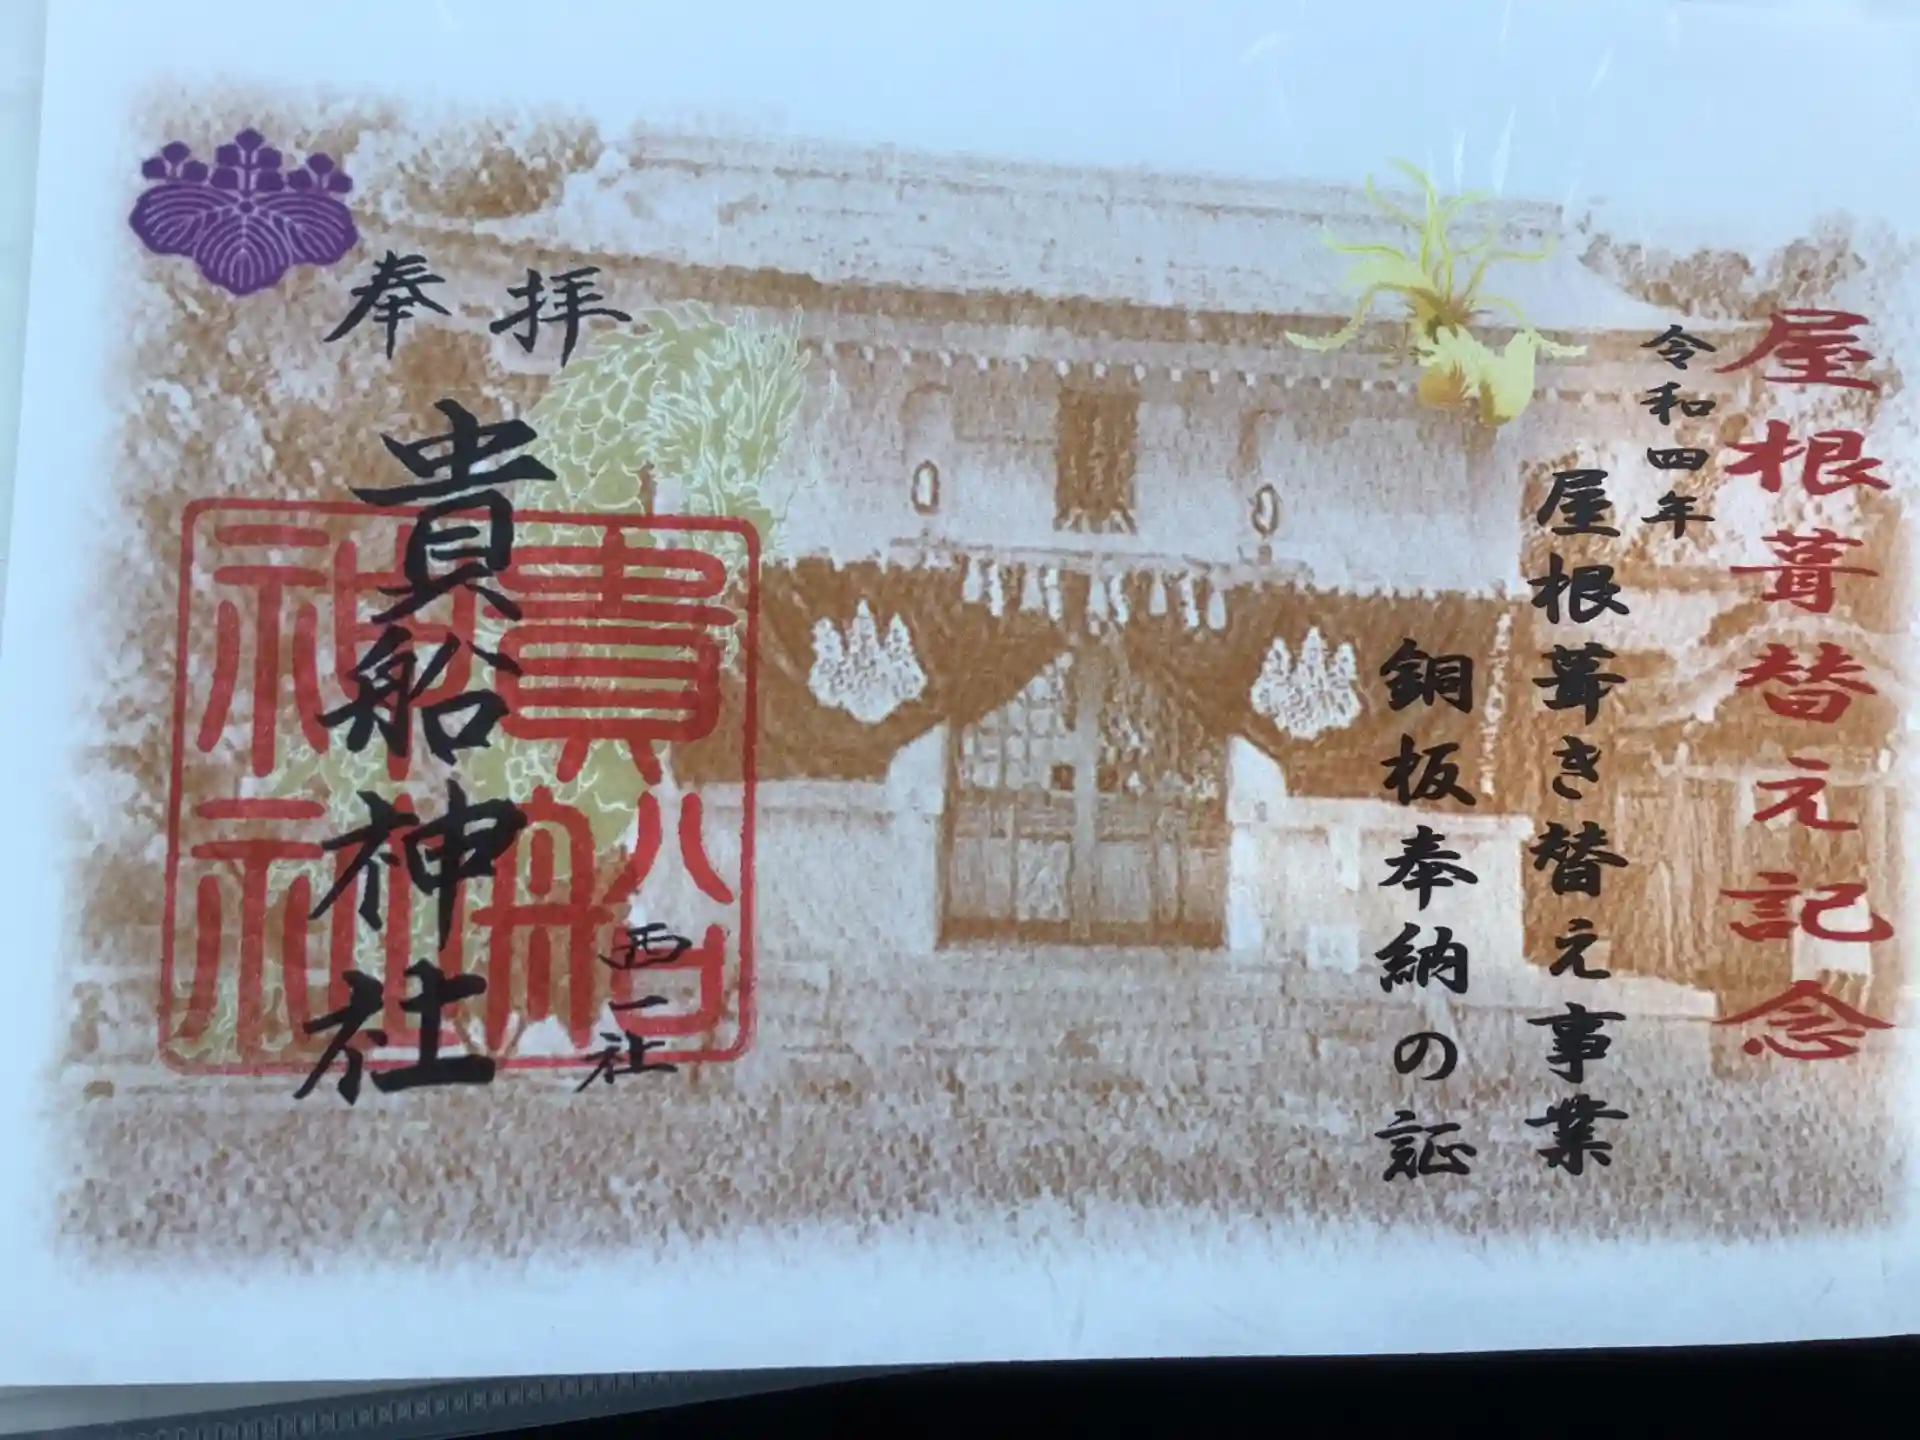 屋根葺替え記念
令和四年
屋根葺き替え事業
銅板奉納の証
奉拝
貴船神社
西一社
貴船
神社